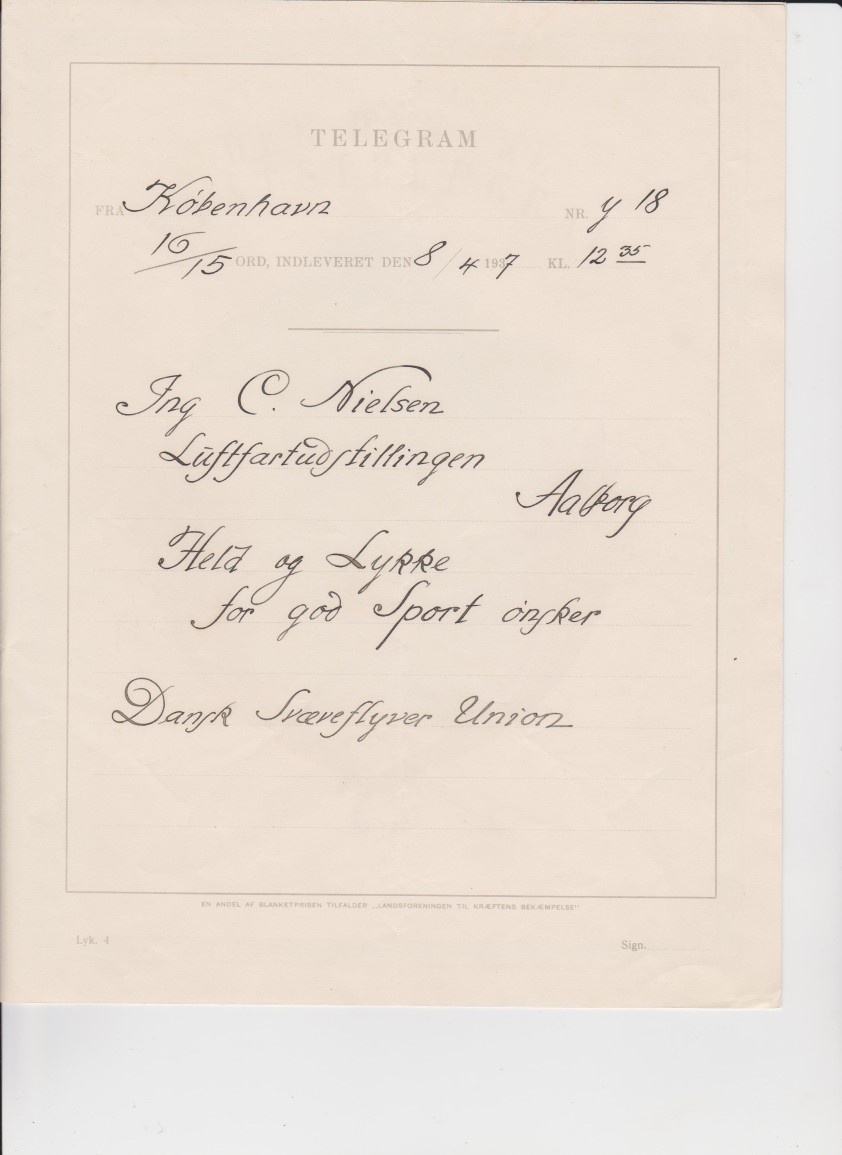 TELEGRAM
FRA København NR. y 18
16/15 ORD, INDLEVERET DEN 8/4 1937 KL. 12 35
Ing C. Nielsen
Luftfartudstillingen
Aalborg
Held og Lykke
for god Sport ønsker
Dansk Svæveflyver Union
EN ANDEL AF BLANKETPRISEN TILFALDER „LANDSFORENINGEN TIL KRÆFTENS BEKÆMPELSE"
Lyk. 4 Sign.